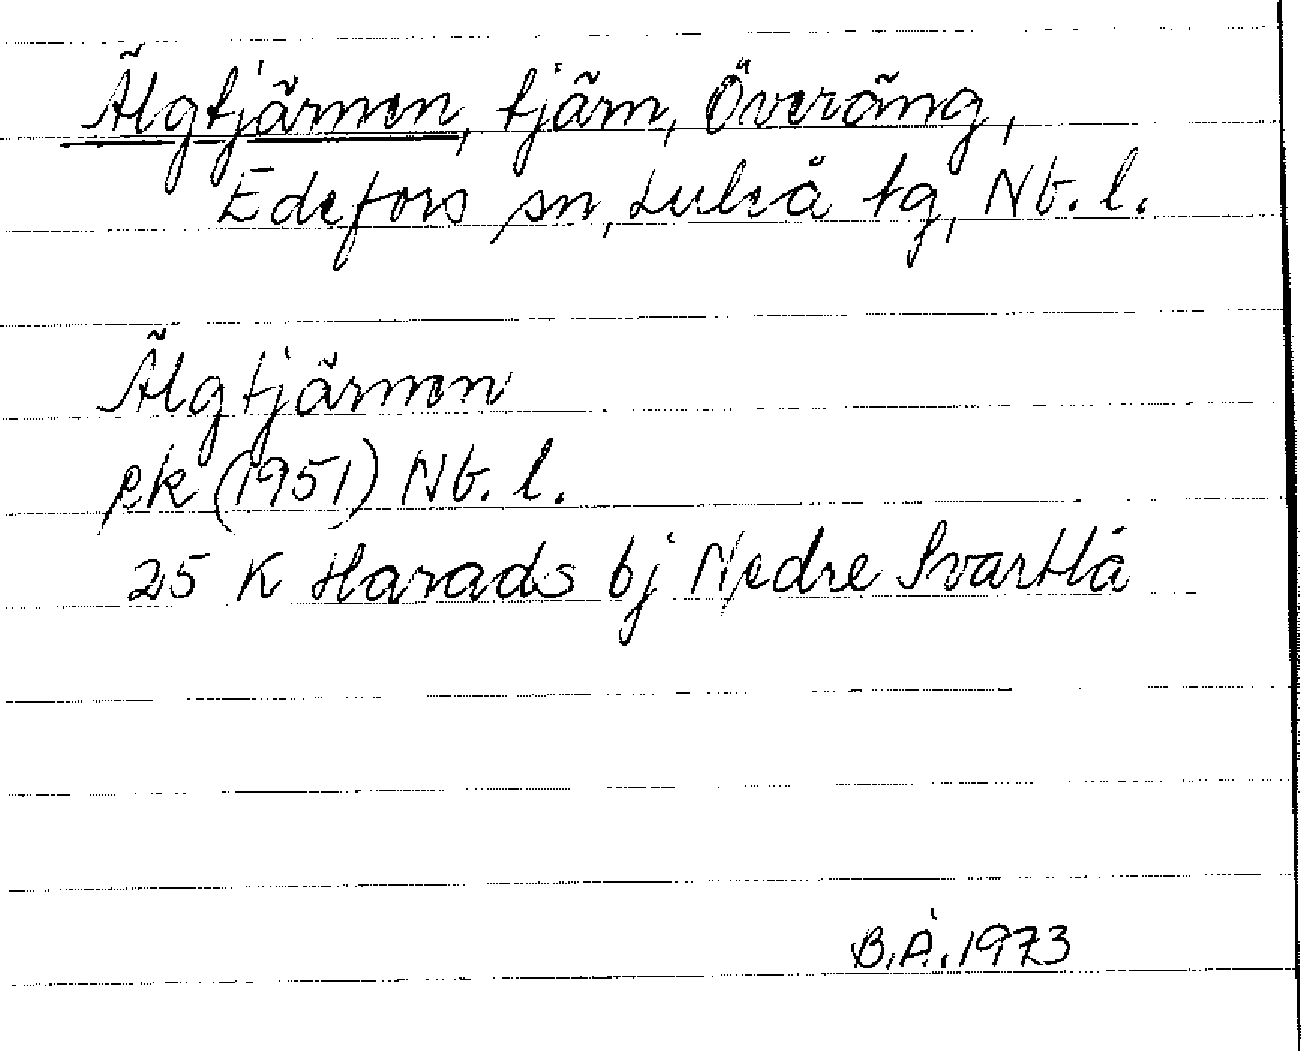 Älgtjärnen, tjärn, Överäng,
Edefors sn, Luleå tg, Nb. l.
Älgtjärnen
ek (1951) Nb. l.
25 K Harads bj Nedre Svartlå
B.Å. 1973